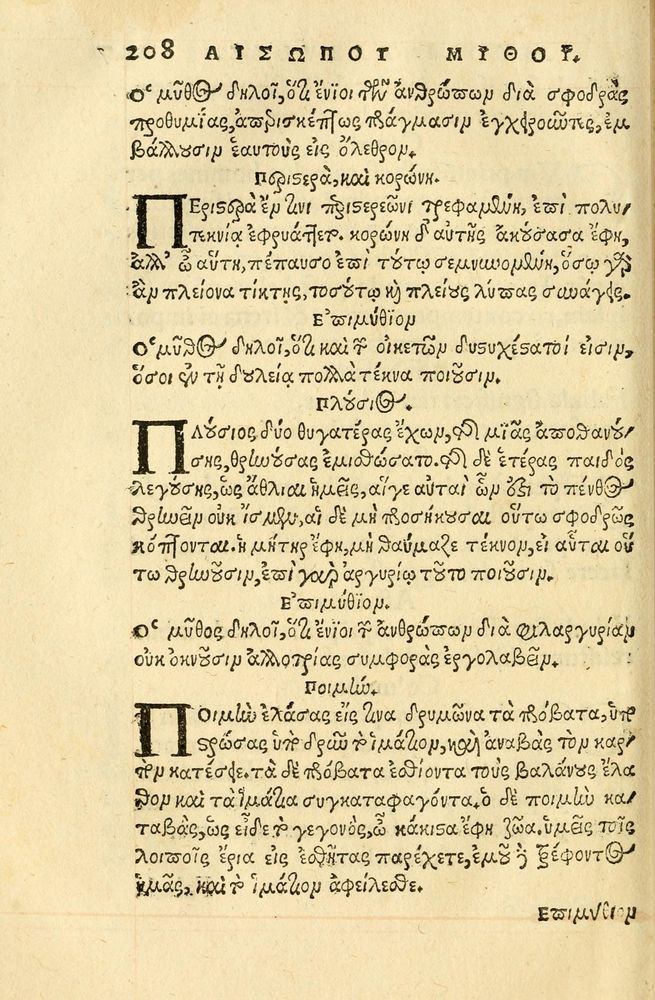 208 ΑΙΣΩΠΟΥ ΜΥΘΟΙ.
Ὁ μῦθος δηλοῖ, ὅτι ἔνιοι τῶν ἀνθρώπων διὰ σφοδρᾶς
προθυμίας, ἀπερισκέπτως πράγμασιν ἐγχειροῦντες, ἐμ
βάλλουσιν ἑαυτοὺς εἰς ὄλεθρον.
Περιστερὰ, καὶ κορώνη.
ΠΕριστερὰ ἔν τινι περιστερεῶνι τρεφομένη, ἐπὶ πολυ/
τεκνίᾳ ἐφρυάττετο. κορώνη δ' αὐτῆς ἀκούσασα ἔφη,
ἀλλ' ὦ αὕτη, πέπαυσο ἐπὶ τούτῳ σεμνυνομένη, ὅσῳ γὰρ
ἂν πλείονα τίκτης, τοσούτῳ καὶ πλείους λύπας συνάγεις.
Ἐπιμύθιον
Ὁ μῦθος δηλοῖ, ὅτι καὶ τῶν οἰκετῶν δυστυχέστατοί εἰσιν,
ὅσοι ἐν τῇ δουλείᾳ πολλὰ τέκνα ποιοῦσιν.
Πλούσιος.
ΠΛούσιος δύο θυγατέρας ἔχων, τῆς μιᾶς ἀποθανού/
σης, θρηνούσας ἐμισθώσατο. τῆς δὲ ἑτέρας παιδὸς
λεγούσης, ὡς ἄθλιαι ἡμεῖς, αἵγε αὐταὶ ὧν ἐστι τὸ πένθος
θρηνεῖν οὐκ ἴσμεν, αἱ δὲ μὴ προσήκουσαι οὕτω σφοδρῶς
κόπτονται. ἡ μήτηρ ἔφη, μὴ θαύμαζε τέκνον, εἰ αὗται οὕ
τω θρηνοῦσιν, ἐπὶ γὰρ ἀργυρίῳ τοῦτο ποιοῦσιν.
Ἐπιμύθιον.
Ὁ μῦθος δηλοῖ, ὅτι ἔνιοι τῶν ἀνθρώπων διὰ φιλαργυρίαν
οὐκ ὀκνοῦσιν ἀλλοτρίας συμφορὰς ἐργολαβεῖν.
Ποιμήν.
ΠΟιμὴν ἐλάσας εἴς τινα δρυμῶνα τὰ πρόβατα, ὑπο
στρώσας ὑπὸ δρῦν τὸ ἱμάτιον, καὶ ἀναβὰς τὸν καρ/
πὸν κατέσειε. τὰ δὲ πρόβατα ἐσθίοντα τοὺς βαλάνους ἔλα
θον καὶ τὰ ἱμάτια συγκαταφαγόντα. ὁ δὲ ποιμὴν κα/
ταβὰς, ὡς εἶδε τὸ γεγονὸς, ὦ κάκιστα ἔφη ζῶα. ὑμεῖς τοῖς
λοιποῖς ἔρια εἰς ἐσθῆτας παρέχετε, ἐμοῦ δὲ τρέφοντος
ὑμᾶς, καὶ τὸ ἱμάτιον ἀφείλεσθε.
Ἐπιμύθιον